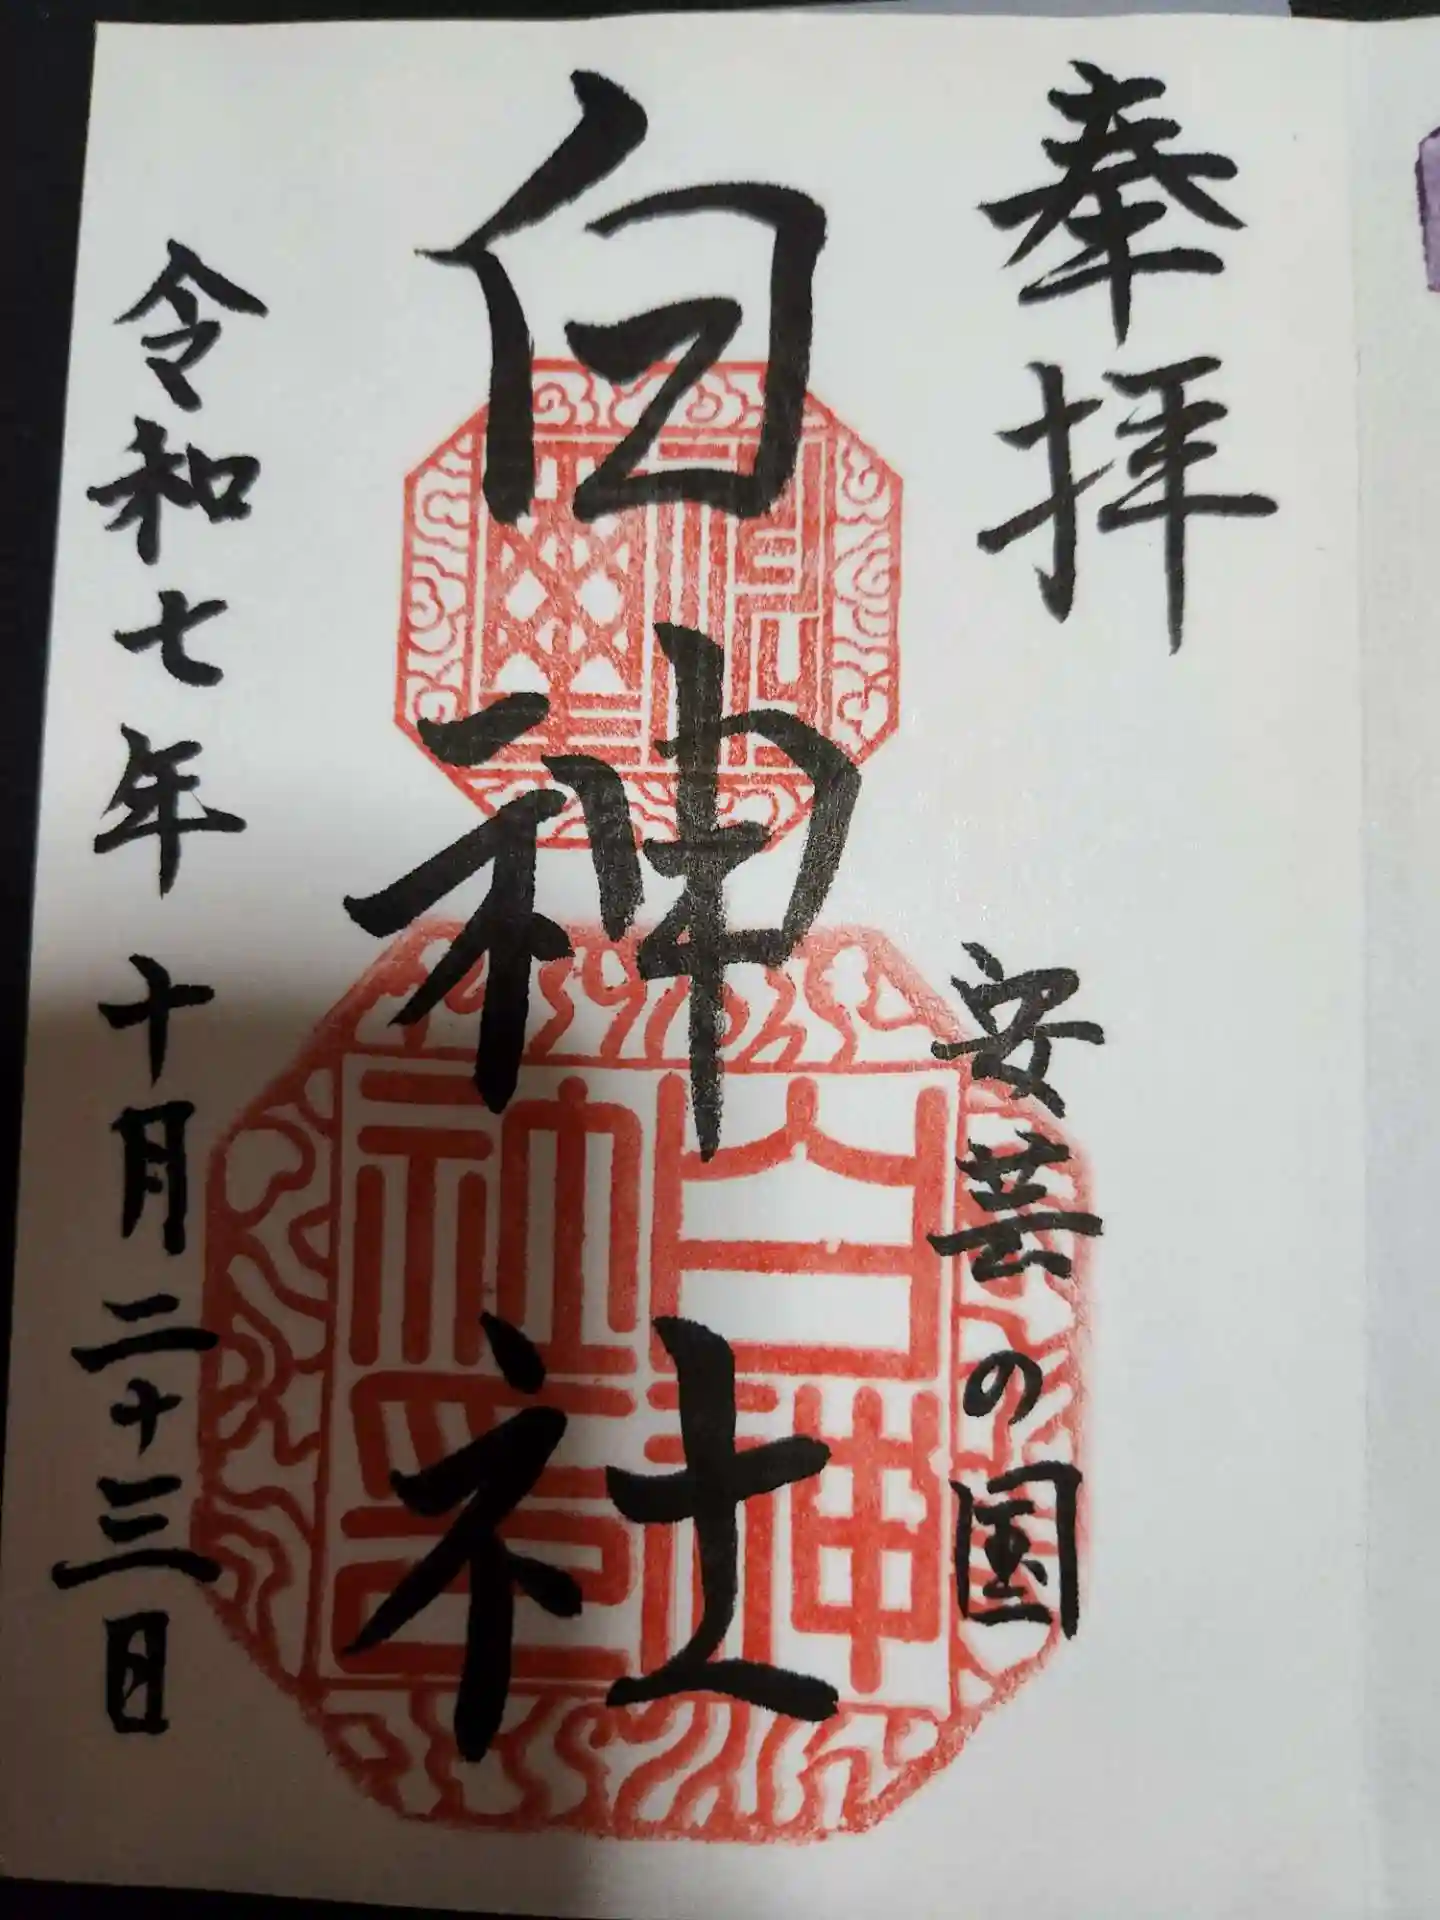 奉拝
安芸の国
白神社
白神
社印
令和七年十月二十三日